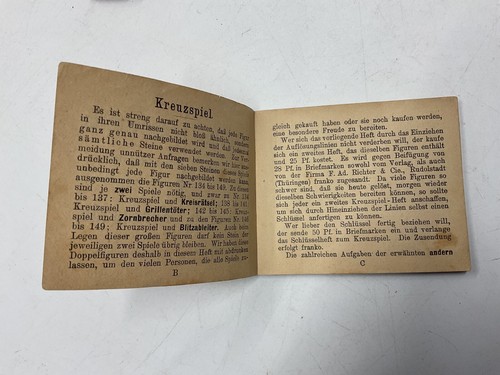 Kreuzspiel.
Es ist streng darauf zu achten, daß jede Figur
in ihren Umrissen nicht bloß ähnlich, sondern
ganz genau nachgebildet wird und daß jedesmal
sämtliche Steine verwendet werden. Zur Ver-
meidung unnützer Anfragen bemerken wir hier aus-
drücklich, daß mit den sieben Steinen dieses Spiels
unbedingt jede Figur nachgebildet werden kann,
ausgenommen die Figuren Nr 134 bis 149. Zu diesen
sind je zwei Spiele nötig, und zwar zu Nr. 134
bis 137: Kreuzspiel und Kreisrätsel; 138 bis 141:
Kreuzspiel und Grillentöter; 142 bis 145: Kreuz-
spiel und Zornbrecher und zu den Figuren Nr. 146
bis 149: Kreuzspiel und Blitzableiter. Auch beim
Legen dieser großen Figuren darf kein Stein der
jeweiligen zwei Spiele übrig bleiben. Wir haben diese
Doppelfiguren deshalb in dieses Heft mit abdrucken
lassen, um den vielen Personen, die alle Spiele zu-
B
gleich gekauft haben oder sie noch kaufen werden,
eine besondere Freude zu bereiten.
Wer sich das vorliegende Heft durch das Einziehen
der Auflösungslinien nicht verderben will, der kaufe
sich ein zweites Heft, das dieselben Figuren enthält
und 25 Pf. kostet. Es wird gegen Beifügung von
28 Pf. in Briefmarken sowohl vom Verlag, als auch
von der Firma F. Ad. Richter & Cie., Rudolstadt
(Thüringen) franko zugesandt. Da viele Figuren so
schwer sind, daß sie heute gelöst, morgen wieder
dieselben Schwierigkeiten bereiten können, so sollte
sich jeder ein zweites Kreuzspiel-Heft anschaffen,
um sich durch Hineinziehen der Linien selbst einen
Schlüssel anfertigen zu können.
Wer lieber den Schlüssel fertig beziehen will,
der sende 50 Pf. in Briefmarken ein und verlange
das Schlüsselheft zum Kreuzspiel. Die Zusendung
erfolgt franko.
Die zahlreichen Aufgaben der erwähnten andern
C